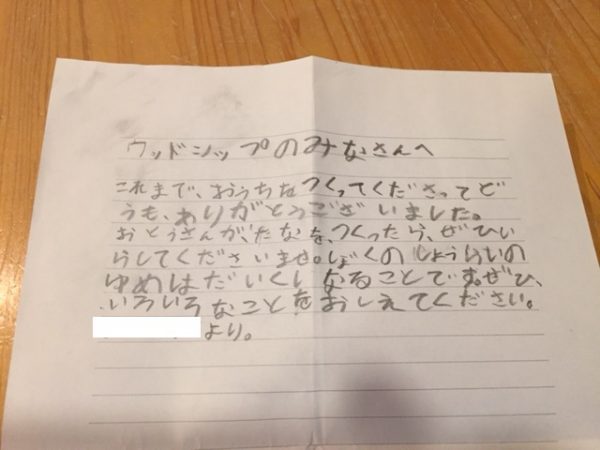 ウッドシップのみなさんへ
これまで、おうちをつくってくださってど
うも、ありがとうございました。
おとうさんが、たなを、つくったら、ぜひい
らしてくださいませ。ぼくの しょうらいの
ゆめはだいくになることです。ぜひ、
いろいろなことをおしえてください。
より。